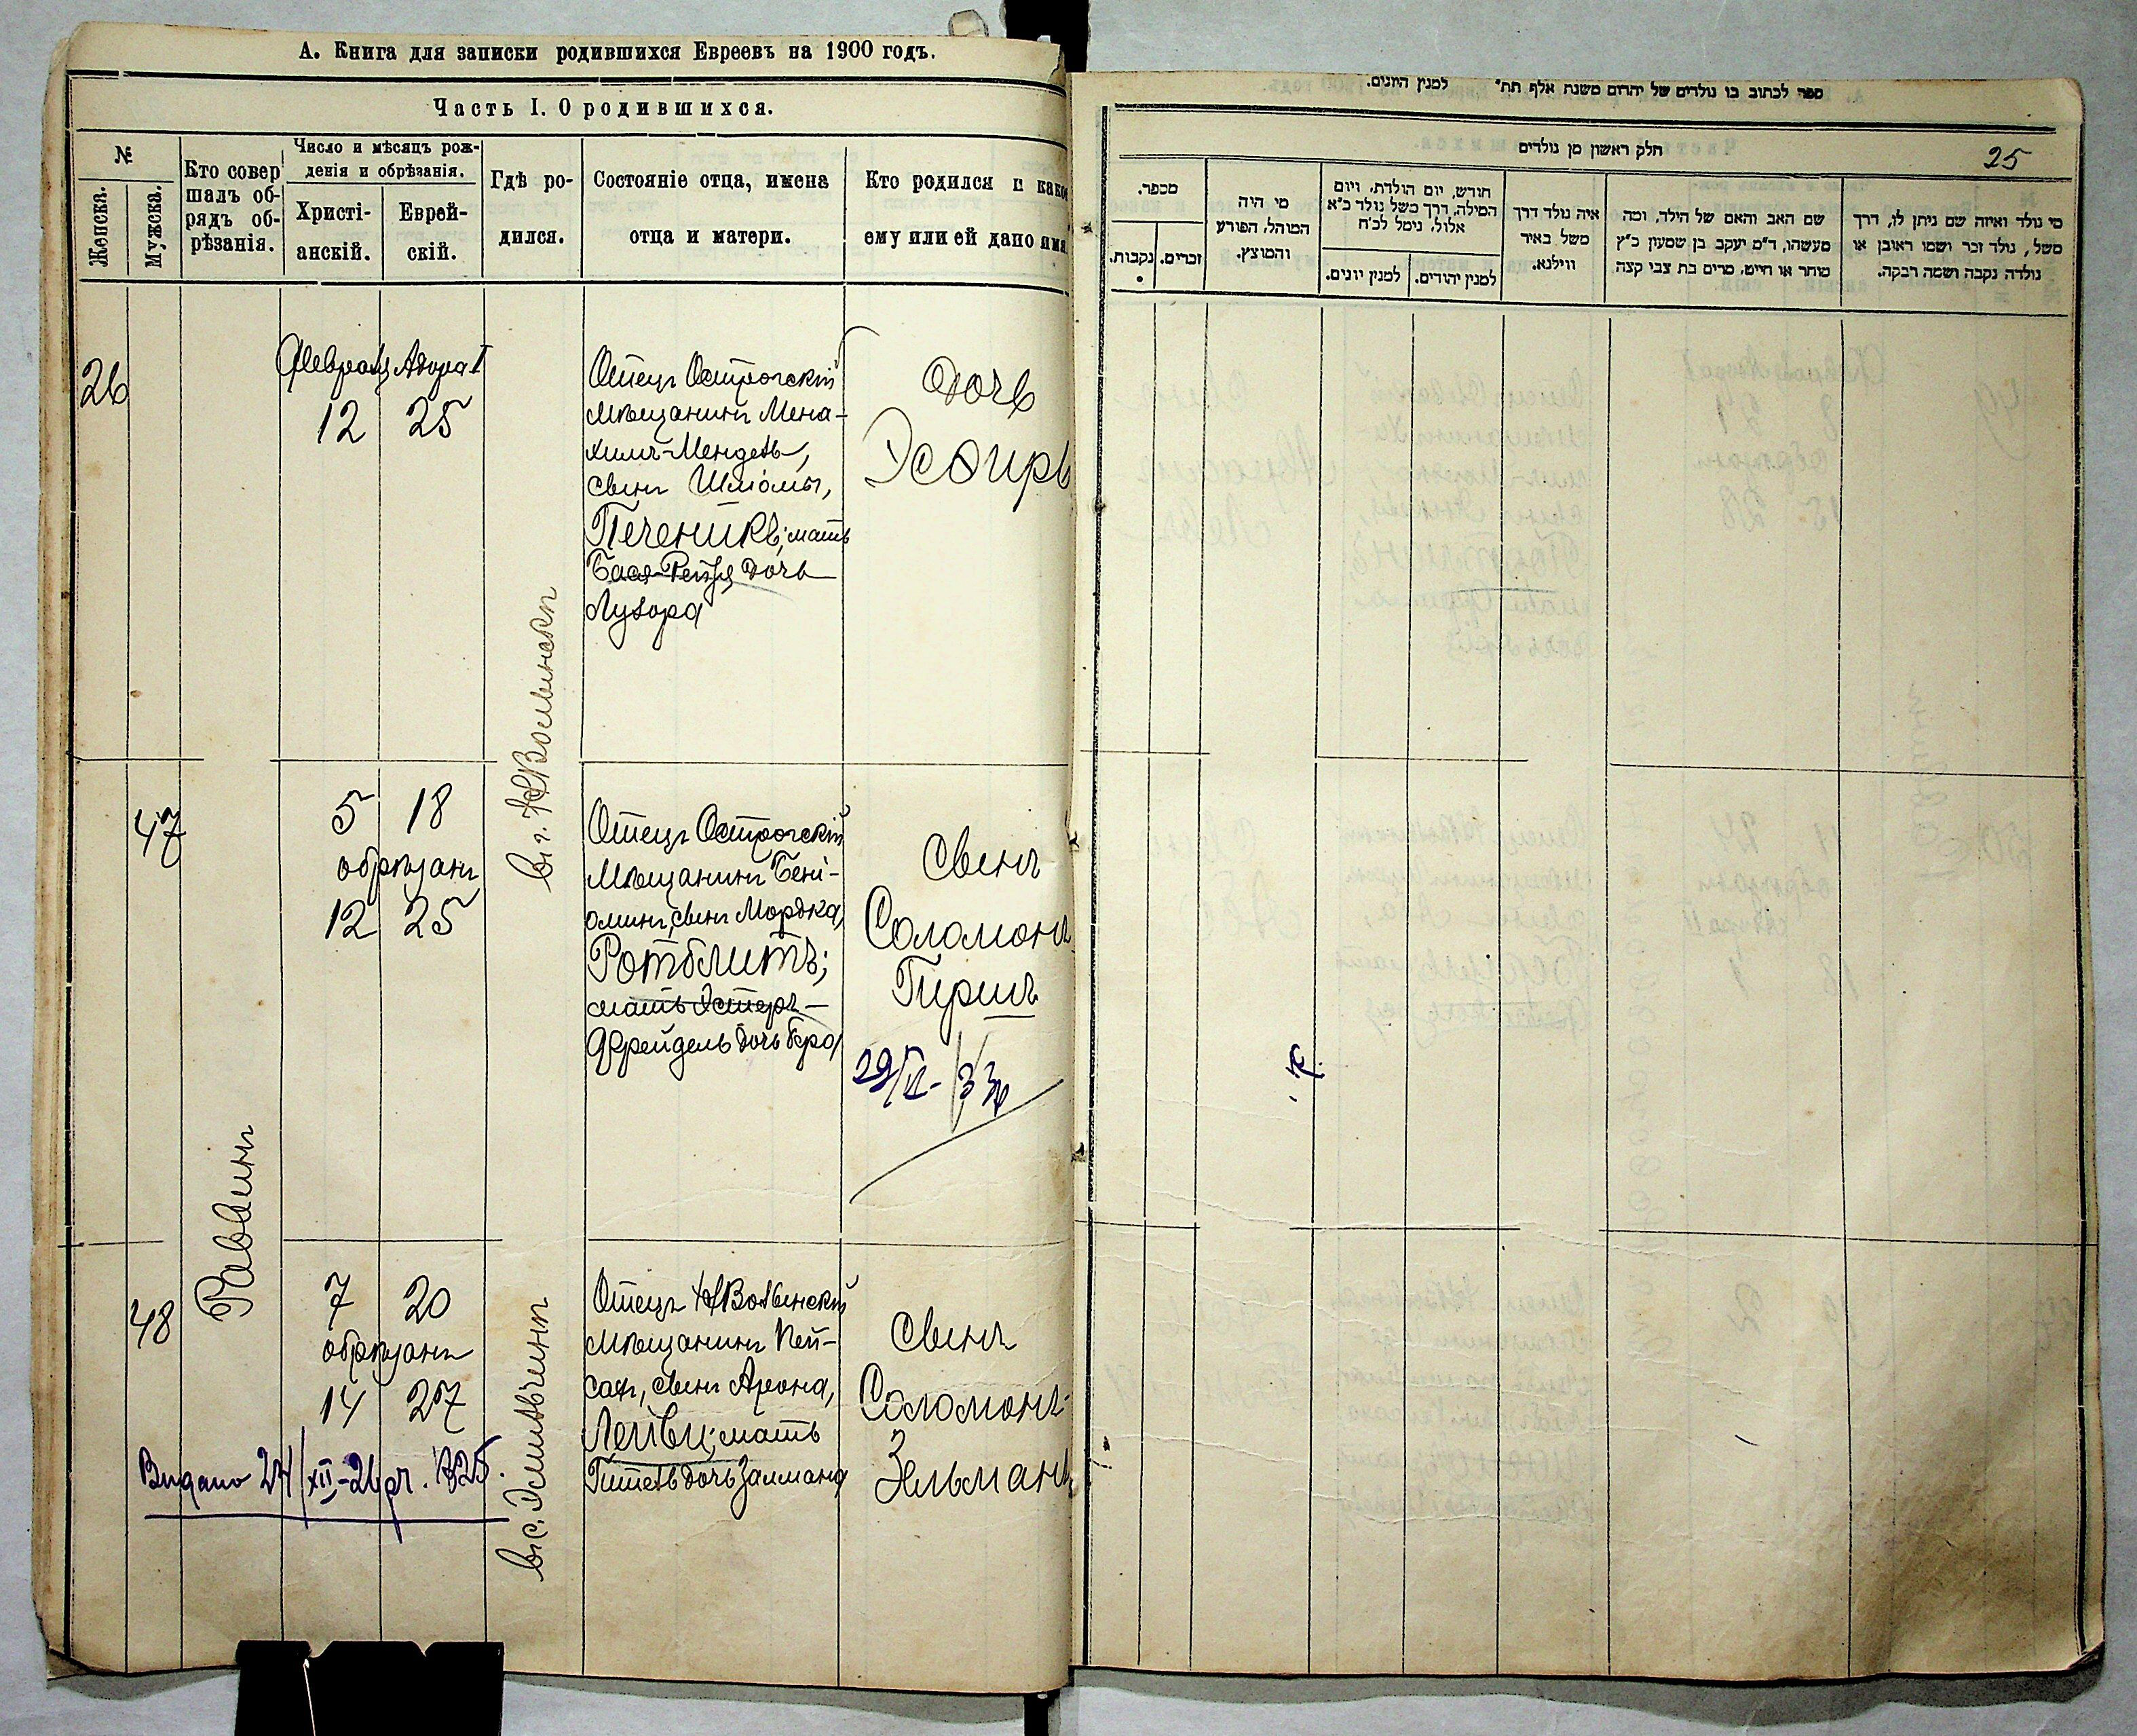 А. Книга для записки родившихся Евреевъ на 1900 годъ.
Часть I. О родившихся.
№
Женска.
Мужска.
Кто совер
шалъ об-
рядъ об-
рѣзанія.
Число и мѣсяцъ рож-
денія и обрѣзанія.
Христі-
анскій.
Еврей-
скій.
Гдѣ ро-
дился.
Состояніе отца, имена
отца и матери.
Кто родился и какое
ему или ей дано имя
26
Февраля Адора I
12 25
Отецъ Острогскій
мѣщанинъ Мена-
химъ-Мендель,
сынъ Шліомы,
Печеникъ; мать
Бася-Рейзя дочь
Лузора
Дочь
Эсѳирь
въ г. НВолынскѣ
47
5 18
обрѣзанъ
12 25
Отецъ Острогскій
мѣщанинъ Бені-
оминъ, сынъ Мордка,
Ротблитъ;
мать Эстеръ-
Фрейдель дочь Бера
сынъ
Соломонъ
Гиршъ
Раввинъ
48
7 20
обрѣзанъ
14 27
Видано 24/XII-26 р.
въ с. Эмильчинѣ
Отецъ НВолынскій
мѣщанинъ Кей-
сафъ, сынъ Арона,
Лейви; мать
Гитель дочь Залмана
сынъ
Соломонъ-
Зельманъ
ספר לכתוב בו נולדים של יהדים משנת אלף תת״ למנין היונים.
חלק ראשון מן נולדים
25
מספר.
נקבות.
זכרים.
מי היה
המוהל, הפורע
והמוצץ.
חודש, יום הולדת, ויום
המילה, דרך משל נולד כ״א
אלול, נימל לכ״ח
למנין יונים.
למנין יהודים.
איה נולד דרך
משל באיר
ווילנא.
שם האב והאם של הילד, ומה
מעשהו, ד״מ יעקב בן שמעון כ״ץ
סוחר או חייט, מרים בת צבי קצה
מי נולד ואיזה שם ניתן לו, דרך
משל, נולד זכר ושמו ראובן או
נולדה נקבה ושמה רבקה.